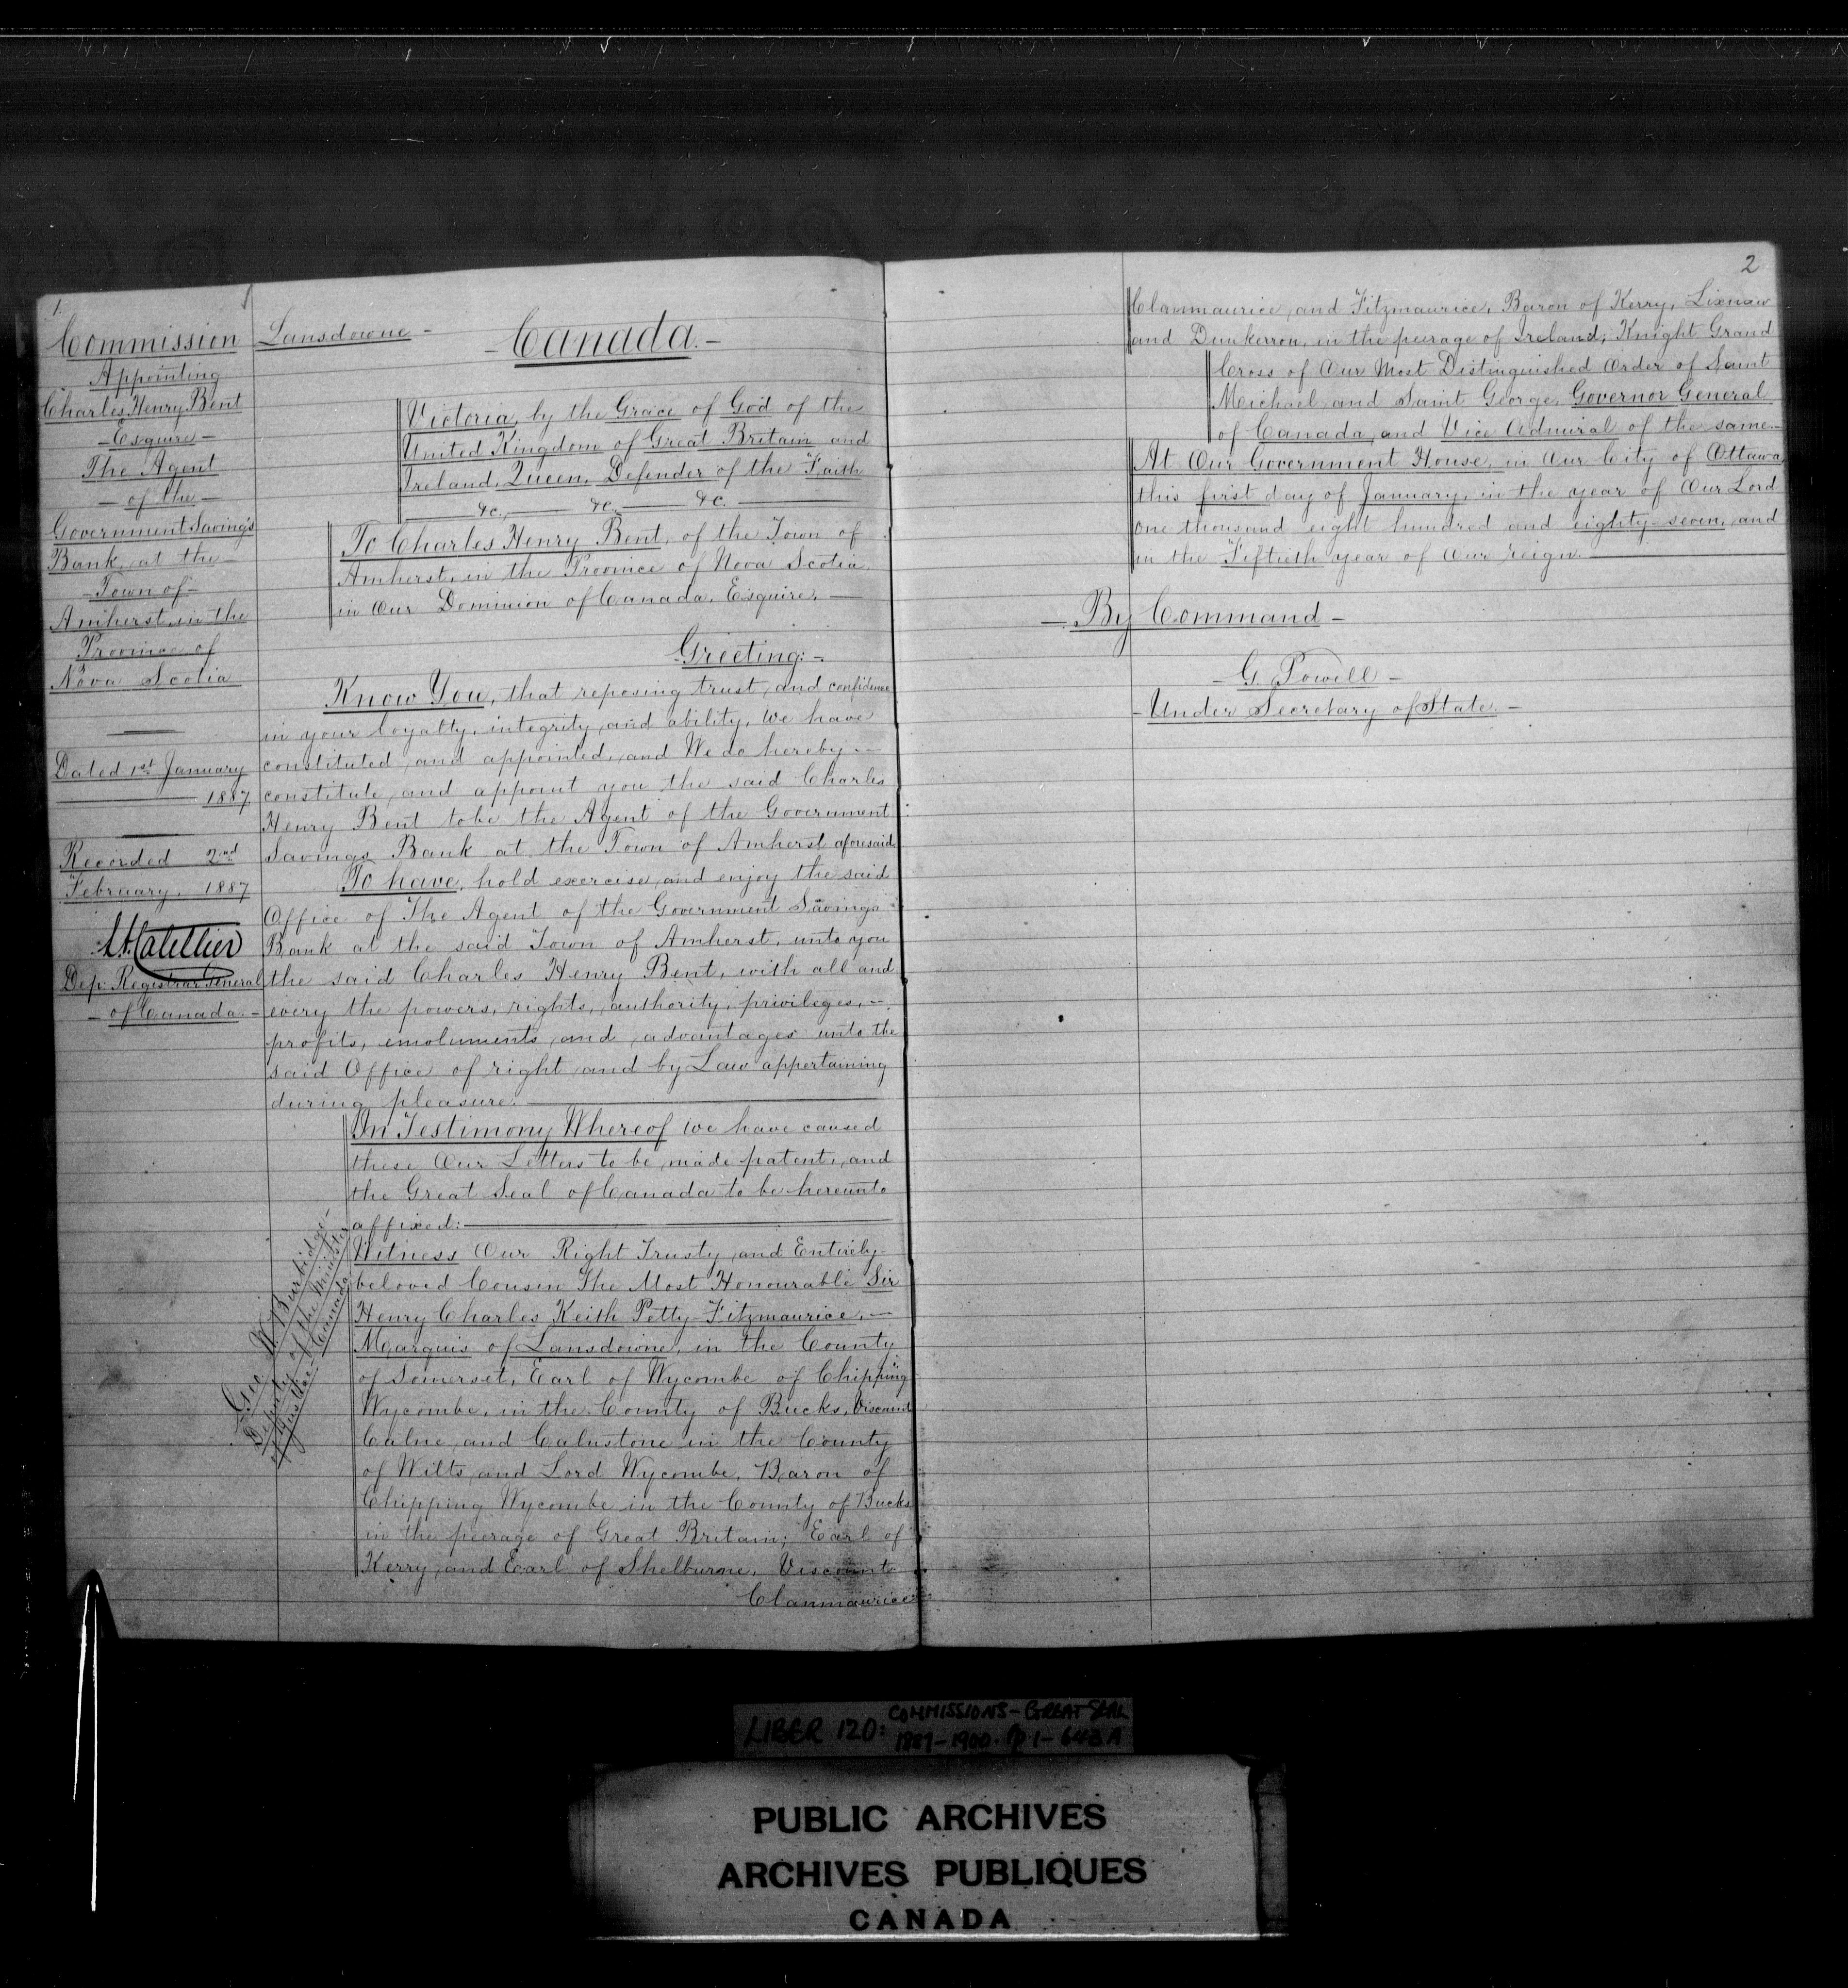 1.
Commission
Appointing
Charles Henry Bent
- Esquire -
The Agent
- of the -
Government Savings
Bank, at the -
- Town of -
Amherst, in the
Province of
Nova Scotia
Dated 1st January
1887
Recorded 2nd
February, 1887
Dep. Registrar General
- of Canada. -
Lansdowne -
- Canada. -
Victoria, by the Grace of God of the
United Kingdom of Great Britain and
Ireland, Queen, Defender of the Faith
&c. &c. &c.
To Charles Henry Bent, of the Town of
Amherst, in the Province of Nova Scotia
in Our Dominion of Canada, Esquire. -
Greeting: -
Know You, that reposing trust and confidence
in your loyalty, integrity and ability, We have
constituted and appointed, and We do hereby -
constitute and appoint you the said Charles
Henry Bent to be the Agent of the Government
Savings Bank at the Town of Amherst aforesaid
To have, hold exercise and enjoy the said
Office of The Agent of the Government Savings
Bank at the said Town of Amherst, unto you
the said Charles Henry Bent, with all and
every the powers, rights, authority, privileges, -
profits, emoluments and advantages unto the
said Office of right and by Law appertaining
during pleasure.
In Testimony Whereof We have caused
these Our Letters to be made patent, and
the Great Seal of Canada to be hereunto
affixed:
Witness Our Right Trusty and Entirely-
beloved Cousin The Most Honourable Sir
Henry Charles Keith Petty-Fitzmaurice, -
Marquis of Lansdowne, in the County
of Somerset, Earl of Wycombe of Chipping
Wycombe, in the County of Bucks, Viscount
Calne and Calnstone in the County
of Wilts, and Lord Wycombe, Baron of
Chipping Wycombe in the County of Bucks
in the peerage of Great Britain; Earl of
Kerry and Earl of Shelburne, Viscount
Clanmaurice
Geo. W. Burbidge -
Deputy of the Minister
of Justice Canada
2
Clanmaurice and Fitzmaurice, Baron of Kerry, Lixnaw
and Dunkerron, in the peerage of Ireland; Knight Grand
Cross of Our Most Distinguished Order of Saint
Michael and Saint George, Governor General
of Canada, and Vice Admiral of the same. -
At Our Government House, in Our City of Ottawa,
this first day of January, in the year of Our Lord
one thousand eight hundred and eighty-seven, and
in the Fiftieth year of Our reign.
- By Command -
- G. Powell -
- Under Secretary of State. -
LIBER 120: COMMISSIONS - GREAT SEAL
1887-1900. pp 1-643A
PUBLIC ARCHIVES
ARCHIVES PUBLIQUES
CANADA